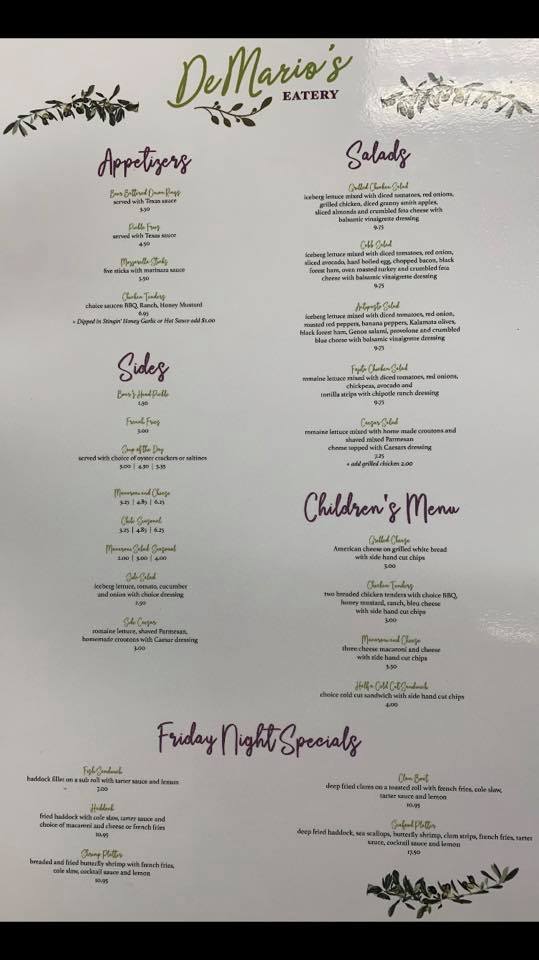 DeMario's
EATERY
Appetizers
Beer Battered Onion Rings
served with Texas sauce
Pickle Fries
served with Texas sauce
4.50
Mozzarella Sticks
five sticks with marinara sauce
5.50
Chicken Tenders
choice sauces: BBQ, Ranch, Honey Mustard
6.95
+ Dipped in Stingin' Honey Garlic or Hot Sauce add $1.00
Sides
Boar's Head Pickle
1.50
French Fries
3.00
Soup of the Day
served with choice of oyster crackers or saltines
3.00 | 4.50 | 5.55
Macaroni and Cheese
3.25 | 4.85 | 6.25
Chili Seasonal
3.25 | 4.85 | 6.25
Macaroni Salad Seasonal
2.00 | 3.00 | 4.00
Side Salad
iceberg lettuce, tomato, cucumber
and onion with choice dressing
2.50
Side Caesar
romaine lettuce, shaved Parmesan,
homemade croutons with Caesar dressing
3.00
Salads
Grilled Chicken Salad
iceberg lettuce mixed with diced tomatoes, red onions,
grilled chicken, diced granny smith apples,
sliced almonds and crumbled feta cheese with
balsamic vinaigrette dressing
9.75
Cobb Salad
iceberg lettuce mixed with diced tomatoes, red onion,
sliced avocado, hard boiled egg, chopped bacon, black
forest ham, oven roasted turkey and crumbled feta
cheese with balsamic vinaigrette dressing
9.75
Antipasto Salad
iceberg lettuce mixed with diced tomatoes, red onion,
roasted red peppers, banana peppers, Kalamata olives,
black forest ham, Genoa salami, provolone and crumbled
blue cheese with balsamic vinaigrette dressing
9.75
Fajita Chicken Salad
romaine lettuce mixed with diced tomatoes, red onions,
chickpeas, avocado and
tortilla strips with chipotle ranch dressing
9.75
Caesar Salad
romaine lettuce mixed with home made croutons and
shaved mixed Parmesan
cheese topped with Caesars dressing
7.25
+ add grilled chicken 2.00
Children's Menu
Grilled Cheese
American cheese on grilled white bread
with side hand cut chips
3.00
Chicken Tenders
two breaded chicken tenders with choice BBQ,
honey mustard, ranch, bleu cheese
with side hand cut chips
5.00
Macaroni and Cheese
three cheese macaroni and cheese
with side hand cut chips
3.50
Half a Cold Cut Sandwich
choice cold cut sandwich with side hand cut chips
4.00
Friday Night Specials
Fish Sandwich
haddock fillet on a sub roll with tarter sauce and lemon
7.00
Haddock
fried haddock with cole slaw, tarter sauce and
choice of macaroni and cheese or french fries
10.95
Shrimp Platter
breaded and fried butterfly shrimp with french fries,
cole slaw, cocktail sauce and lemon
10.95
Clam Boat
deep fried clams on a toasted roll with french fries, cole slaw,
tarter sauce and lemon
10.95
Seafood Platter
deep fried haddock, sea scallops, butterfly shrimp, clam strips, french fries, tarter
sauce, cocktail sauce and lemon
17.50